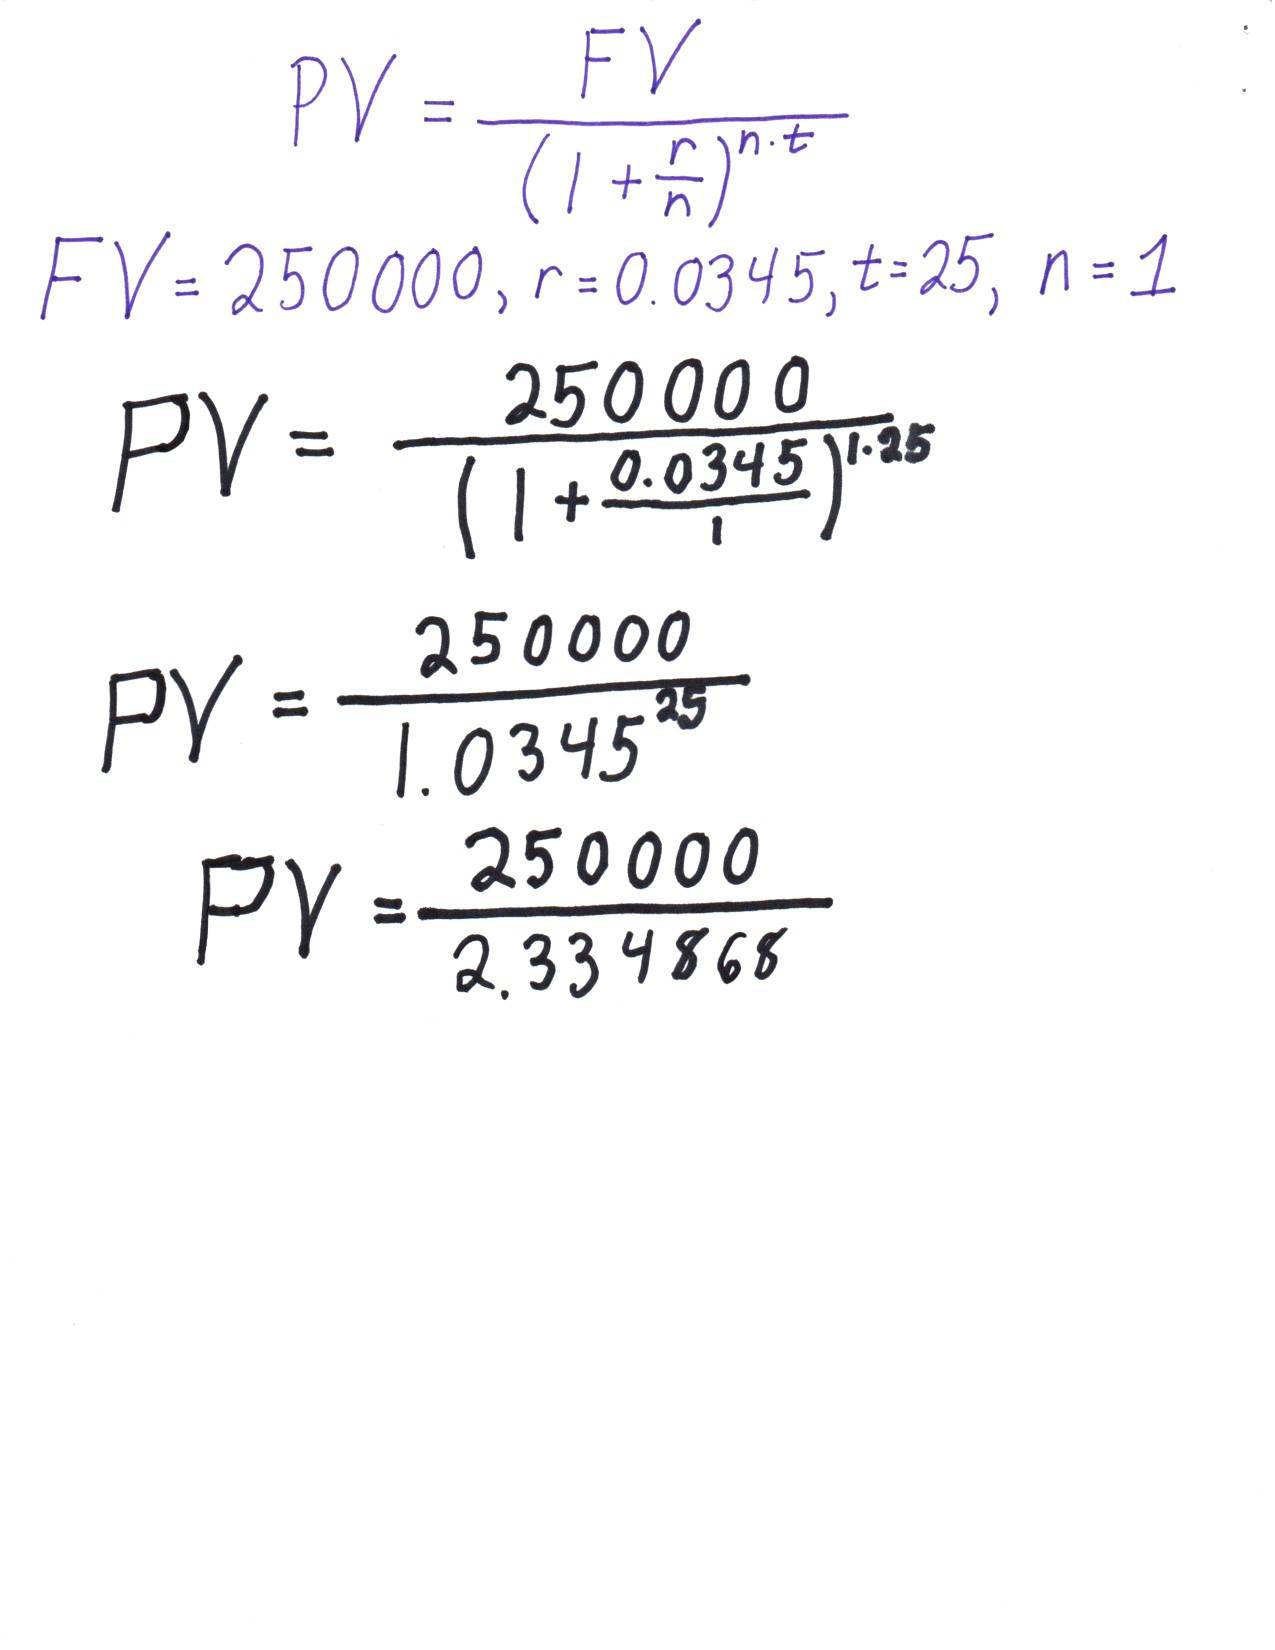 PV = FV / (1 + r/n)^n·t
FV = 250000, r = 0.0345, t = 25, n = 1
PV = 250000 / (1 + 0.0345/1)^1·25
PV = 250000 / 1.0345^25
PV = 250000 / 2.334868